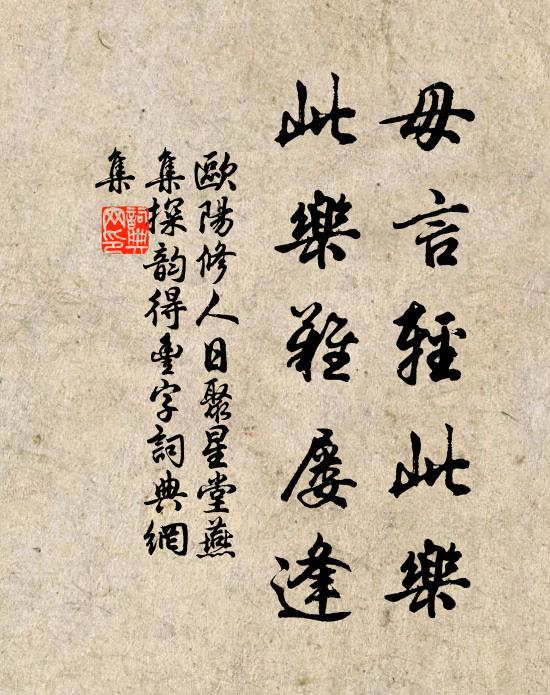 毋言輕此樂
此樂難屡逢
歐陽修人日聚星堂燕
集探韵得豊字詞典網
集
詞典網印